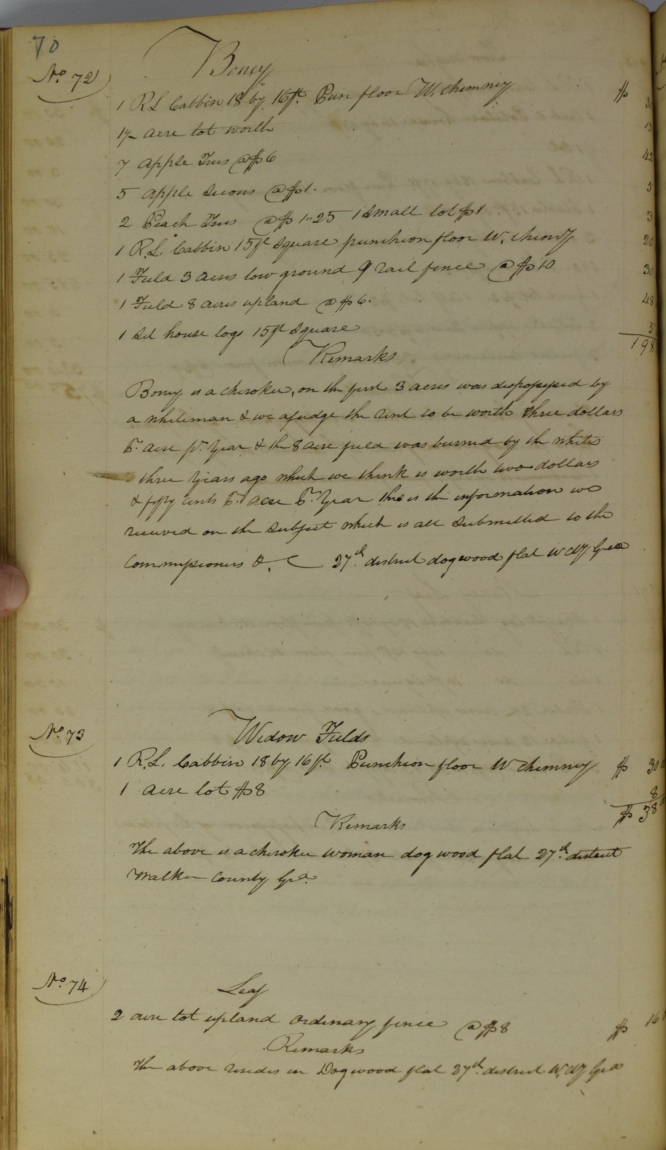 70
No. 72
Boney
1 R.L Cabbin 18 by 16 ft. Pun floor W. Chimney $ 3
acre lot worth
7 Apple Trees @ $6 42
5 Apple Scions @ $1. 5
2 Peach Trees @ $ 1-25 1 Small lot $1 3
1 R.L. Cabbin 15ft Square puncheon floor W. Chimy 20
1 Field 3 Acres low ground 9 rail fence @ $10 30
1 Field 8 acres upland @ $6. 48
1 house logs 15ft Square 5
198
Remarks
Boney is a cherokee, on the first 3 acres was dispossessed by
a whiteman & we ajudge the rent to be worth three dollars
Pr. acre pr. Year & the 8 acre field was burned by the white
three years ago which we think is worth two dollars
& fifty cents Pr acre Pr. Year this is the information we
received on the Subject which is all Submitted to the
Commissioners &. C 27th district dogwood flat W. Cty. Geo
No. 73
Widow Fields
1 R.L. Cabbin 18 by 16 ft. Puncheon floor W Chimney $ 30
1 Acre lot $8 8
$ 38
Remarks
The above is a cherokee woman dogwood flat 27th district
Walker County Ga.
No. 74
Leaf
2 acre lot upland ordinary fence @ $8 $ 16
Remarks
The above resides in Dogwood flat 27th district W. Cty Geo